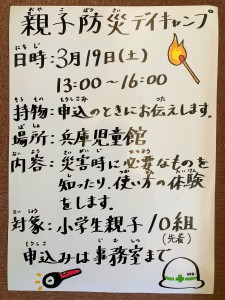 親子防災デイキャンプ
日時:3月19日(土)
13:00~16:00
持物:申込のときにお伝えします。
場所:兵庫児童館
内容:災害時に必要なものを
知ったり、使い方の体験
をします。
対象:小学生親子10組
(先着)
申込みは事務室まで